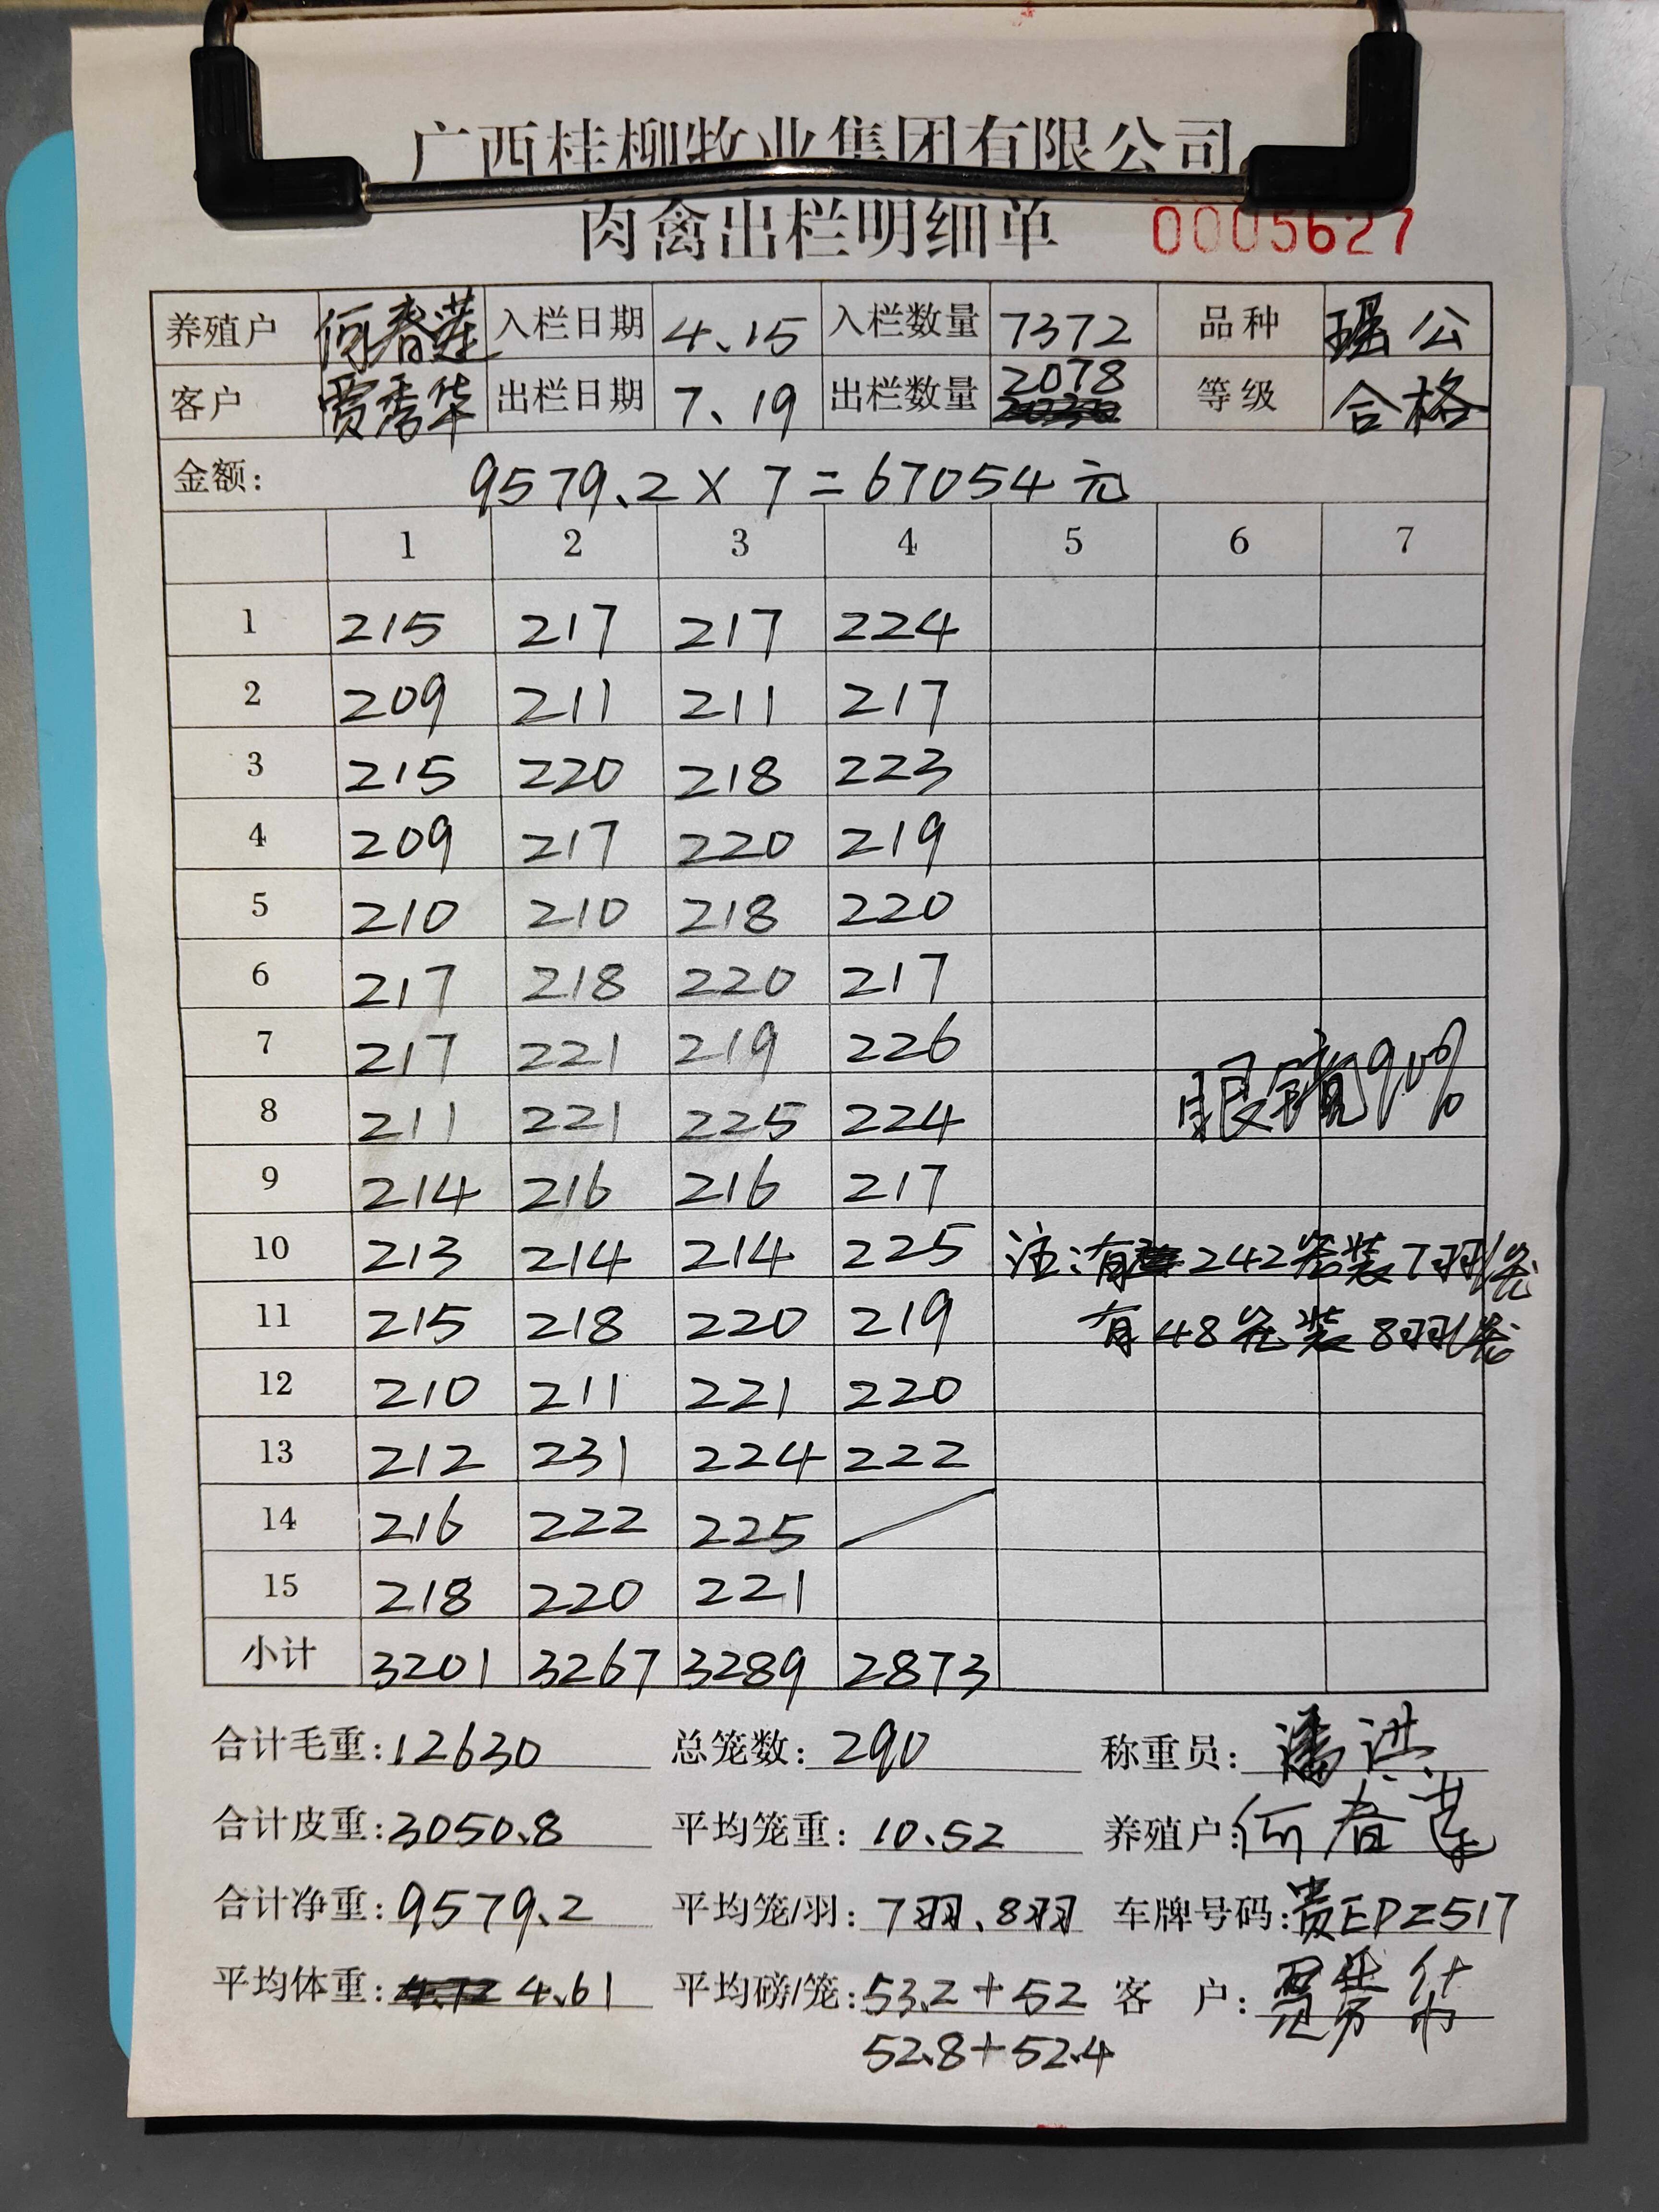 广西桂柳牧业集团有限公司
肉禽出栏明细单 0005627
养殖户 何春莲 入栏日期 4.15 入栏数量 7372 品种 瑶公
客户 贾秀华 出栏日期 7.19 出栏数量 2078 等级 合格
金额: 9579.2×7=67054元
1 2 3 4 5 6 7
1 215 217 217 224
2 209 211 211 217
3 215 220 218 223
4 209 217 220 219
5 210 210 218 220
6 217 218 220 217
7 217 221 219 226
眼镜90%
8 211 221 225 224
9 214 216 216 217
10 213 214 214 225 注:有242笼装7羽/笼
11 215 218 220 219 有48笼装8羽/笼
12 210 211 221 220
13 212 231 224 222
14 216 222 225
15 218 220 221
小计 3201 3267 3289 2873
合计毛重:12630 总笼数:290 称重员:潘洪
合计皮重:3050.8 平均笼重:10.52 养殖户:何春莲
合计净重:9579.2 平均笼/羽:7羽、8羽 车牌号码:贵EPZ517
平均体重:4.61 平均磅/笼:53.2+52 客 户:贾秀华
52.8+52.4